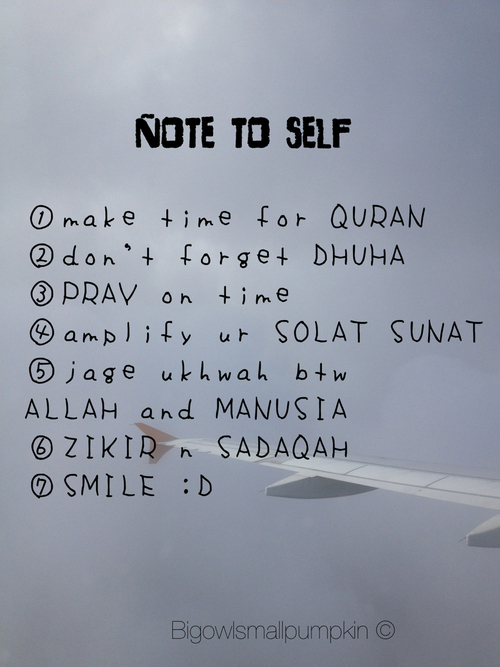 ÑOTE TO SELF
① make time for QURAN
② don't forget DHUHA
③ PRAY on time
④ amplify ur SOLAT SUNAT
⑤ jage ukhwah btw
ALLAH and MANUSIA
⑥ ZIKIR n SADAQAH
⑦ SMILE :D
Bigowlsmallpumpkin ©